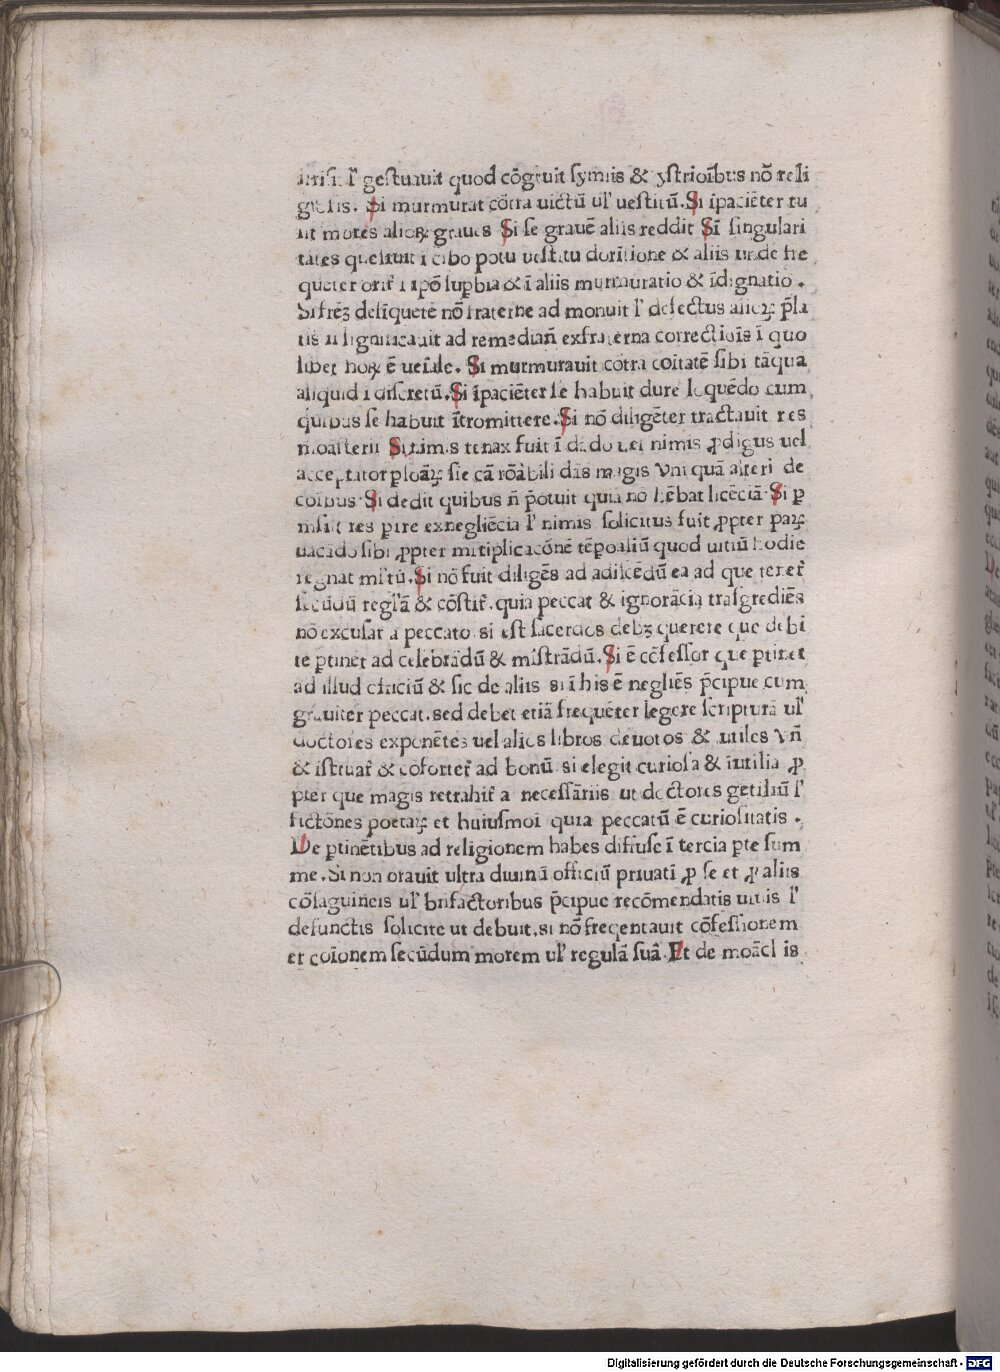 gestuauit quod cõgruit symiis & ystrioĩbus nõ reli
giosis. Si murmurat cõtra uictũ ul' uestitũ. Si ĩpaciẽter tu
lit mores alioꝝ graues Si se grauẽ aliis reddit Sĩ singulari
tates quesiuit ĩ cibo potu uestitu dorĩtione & aliis unde fre
queter orit̃ ĩ ipõ supbia & ĩ aliis murmuratio & ĩdignatio .
Si frẽꝫ delĩquetẽ nõ fraterne ad monuit l' defectus alioꝝ p̃la
tis ñ significauit ad remediañ ex fraterna correctiõis ĩ quo
libet hoꝝ ẽ ueĩale. Si murmurauit cõtra coĩtatẽ sibi tãqua
aliquid ĩ discretũ. Si ĩpaciẽter se habuit dure loquẽdo cum
quibus se habuit ĩtromittere. Si nõ diligẽter tractauit res
moasterii Si nimis tenax fuit ĩ dãdo uel nimis ꝓdigus uel
acceptator ꝑsoãꝝ sie cã rõabili dãs magis vni quã alteri de
coĩbus. Si dedit quibus ñ p̃otuit quia nõ hẽbat licẽciã. Si ꝑ
misit res ꝑire ex negliẽcia l' nimis solicitus fuit ꝓpter paꝝ
uacãdo sibi ꝓpter mĩtiplicacõnẽ tẽpoaliũ quod uitiũ hodie
regnat mĩtũ. Si nõ fuit diligẽs ad adiscẽdũ ea ad que tenet̃
secũdũ regl'ã & cõstit̃. quia peccat & ignorãcia trãsgrediẽs
nõ excusat a peccato si est sacerdos debꝫ querere que debi
te ꝑtinet ad celebrãdũ & mĩstrãdũ. Si ẽ cõfessor que ꝑtinet
ad illud officiũ & sic de aliis si ĩ his ẽ negliẽs p̃cipue cum
grauiter peccat. sed debet etiã frequẽter legere scripturã ul'
doctores exponẽtes uel alios libros deuotos & utiles vñ
& ĩstruat̃ & cõfortet̃ ad bonũ si elegit curiosa & ĩutilia ꝓ
pter que magis retrahit̃ a necessãriis ut doctores gẽtiliũ l'
fictõnes poetaꝝ et huiusmoi quia peccatũ ẽ curiositatis .
De ꝑtinẽtibus ad religionem habes diffuse ĩ tercia ꝑte sum
me. Si non orauit ultra diuinũ officiũ priuatĩ ꝓ se et ꝓ aliis
cõsaguineis ul' bñfactoribus p̃cipue recõmendatis uiuis l'
defunctis solicite ut debuit. si nõ freqentauit cõfessionem
et coĩonem secũdum morem ul' regulã suã. Et de moãcl is
Digitalisierung gefördert durch die Deutsche Forschungsgemeinschaft - DFG